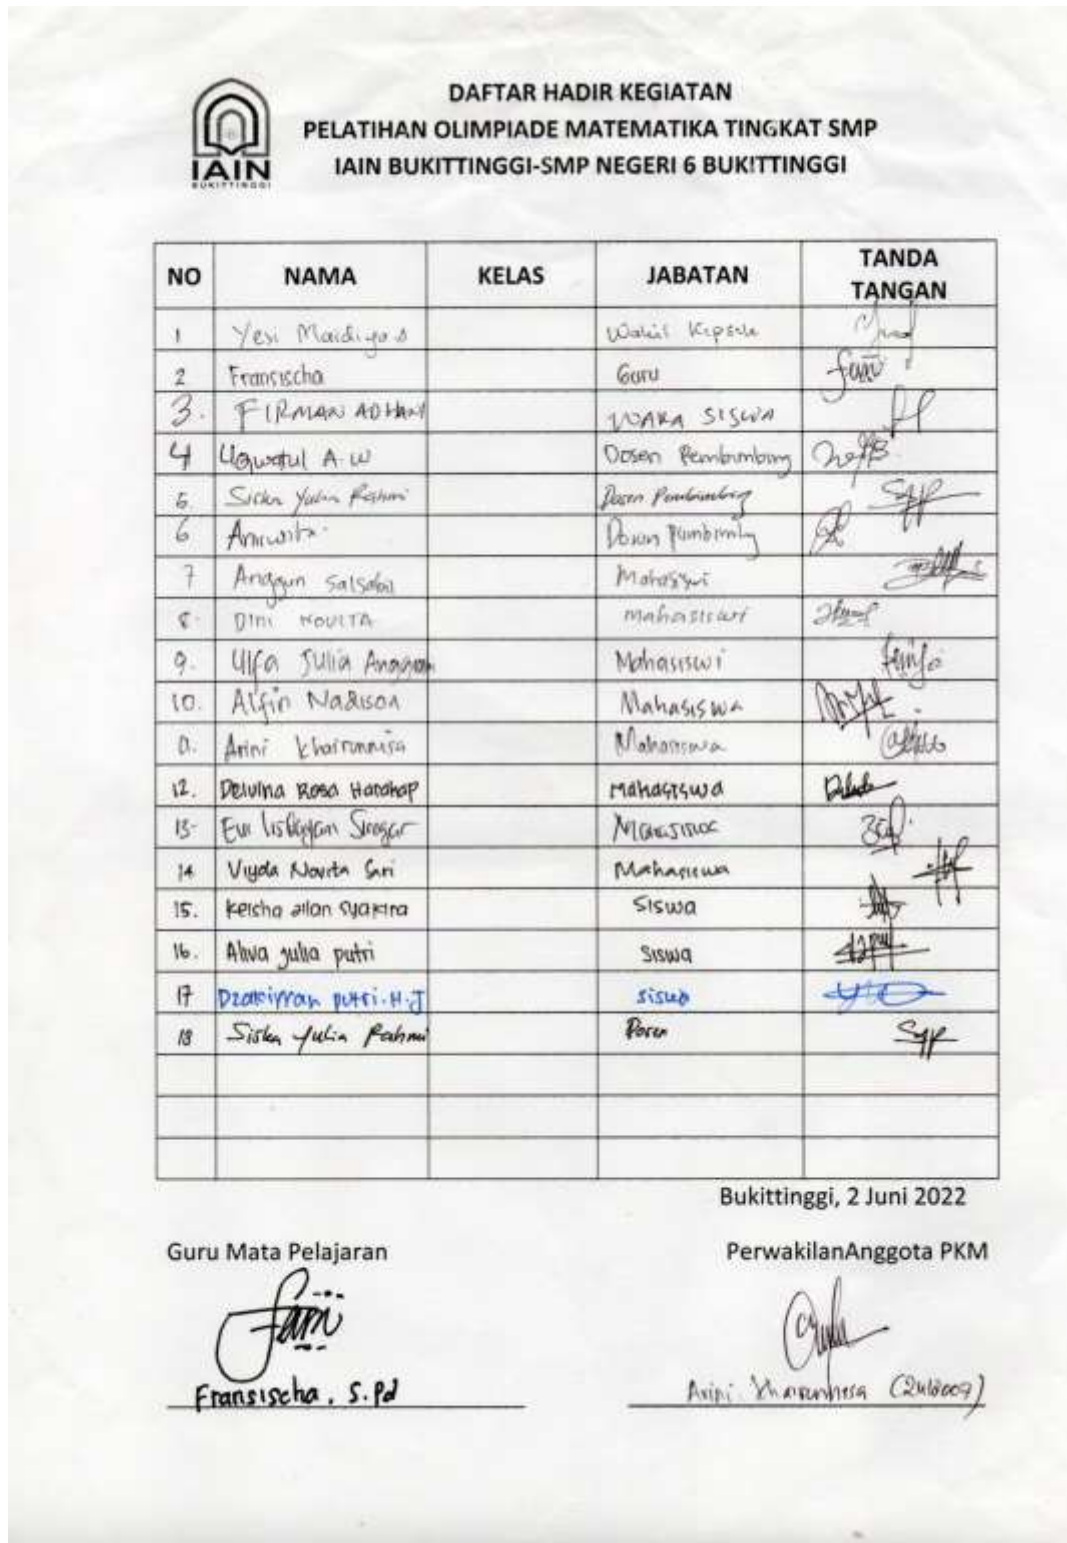 IAIN
BUKITTINGGI
DAFTAR HADIR KEGIATAN
PELATIHAN OLIMPIADE MATEMATIKA TINGKAT SMP
IAIN BUKITTINGGI-SMP NEGERI 6 BUKITTINGGI
NO NAMA KELAS JABATAN TANDA TANGAN
1 Yesi Wakil
2 Fransischa Guru
3. FIRMAN ADHANI WAKA SISWA
4 Uqwatul A.W Dosen Pembimbing
5. Siska Yulia Rahmi Dosen Pembimbing
6 Dosen Pembimbing
7 Anggun Salsabil
8. Dini NOVITA Mahasiswi
9. Ulfa Julia Mahasiswi
10. Alfin Nadison Mahasiswa
Arini Khairunnisa Mahasiswa
12. Delvina Rosa Harahap Mahasiswa
13. Siregar
14 Viyola Novita Sari Mahasiswa
15. Keisha ailan syakira Siswa
16. Aliva julia putri Siswa
17 putri.H.J siswa
18 Siska Yulia Rahmi Dosen
Bukittinggi, 2 Juni 2022
Guru Mata Pelajaran PerwakilanAnggota PKM
Fransischa, S.Pd Arini